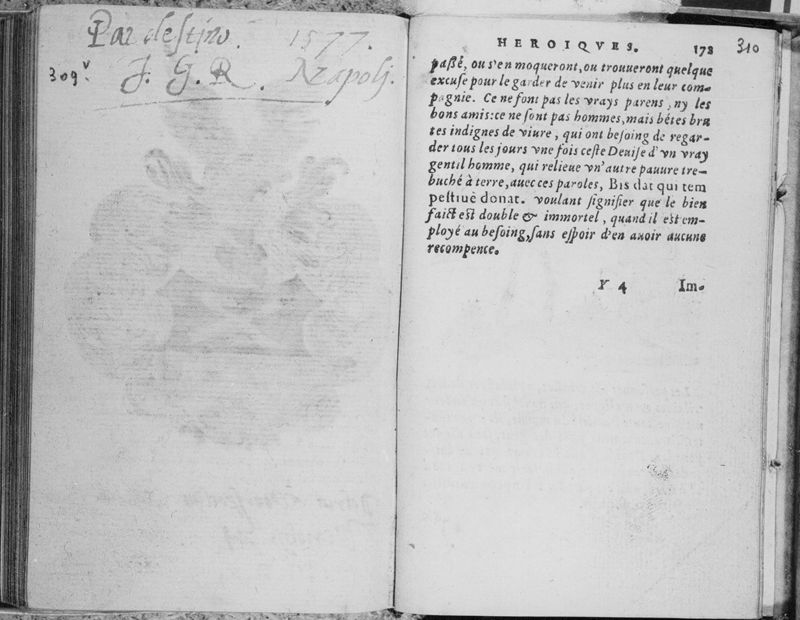 Par destin. 1577.
309v J. G. R. Nzapolj.
HEROIQVES. 178 310
paßé, ou s'en moqueront, ou trouueront quelque
excuse pour le garder de venir plus en leur com-
pagnie. Ce ne sont pas les vrays parens, ny les
bons amis: ce ne sont pas hommes, mais bétes bru
tes indignes de viure, qui ont besoing de regar-
der tous les jours vne fois ceste Deuise d'vn vray
gentil homme, qui relieue vn'autre pauure tre-
buché à terre, auec ces paroles, Bis dat qui tem
pestiuè donat. voulant signifier que le bien
faict est double & immortel, quand il est em-
ployé au besoing, sans espoir d'en auoir aucune
recompence.
Y 4 Im-